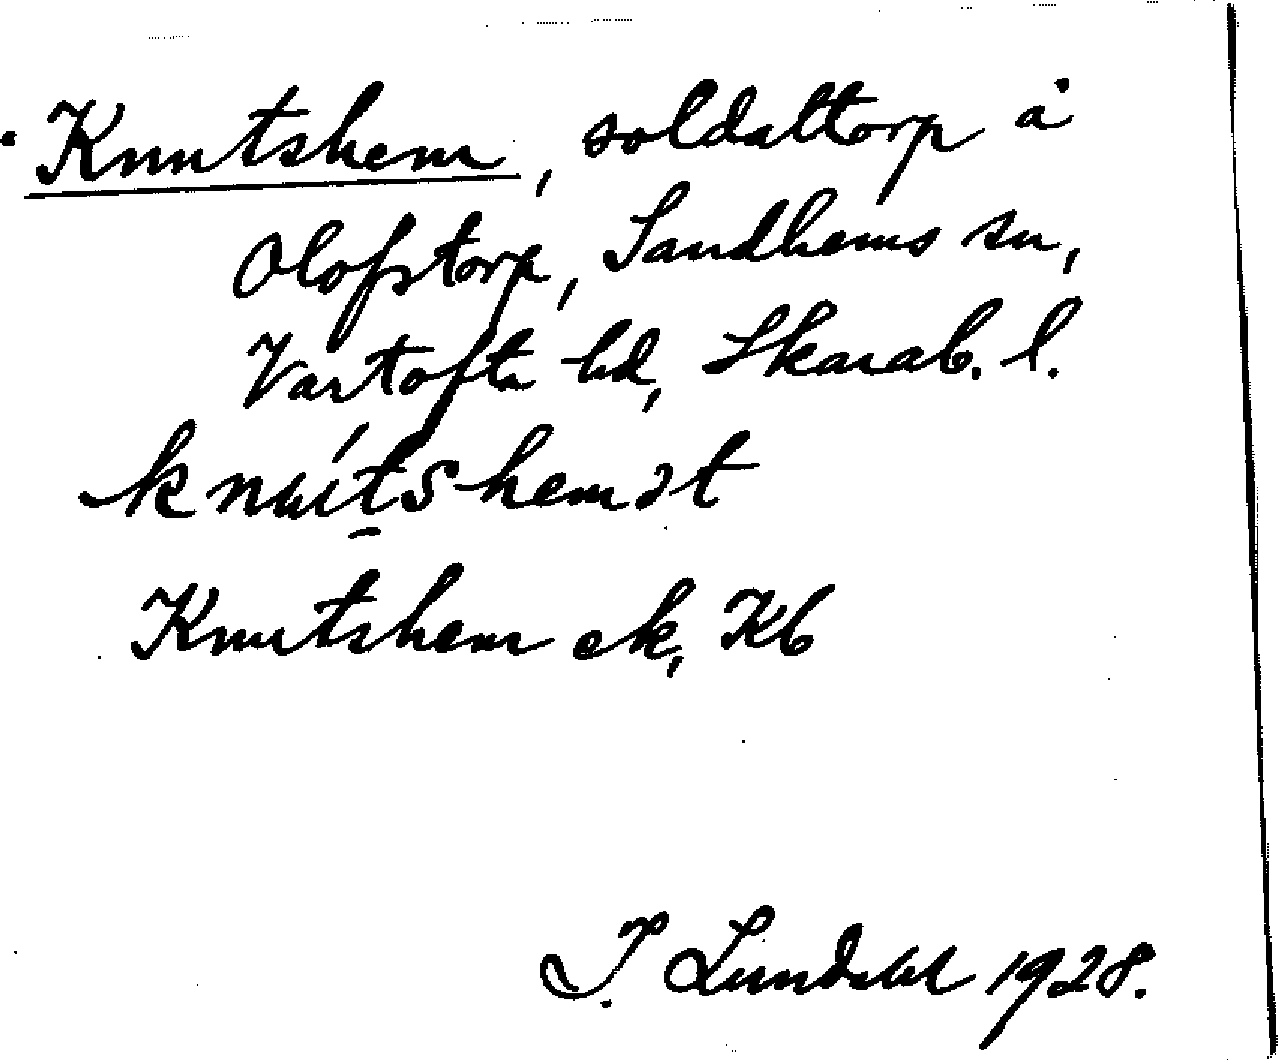 Knutshem, soldattorp å
Olofstorp, Sandhems sn,
Vartofta hd, Skarab. l.
knutshemət
Knutshem ek, Kb
I. Lundahl 1928.